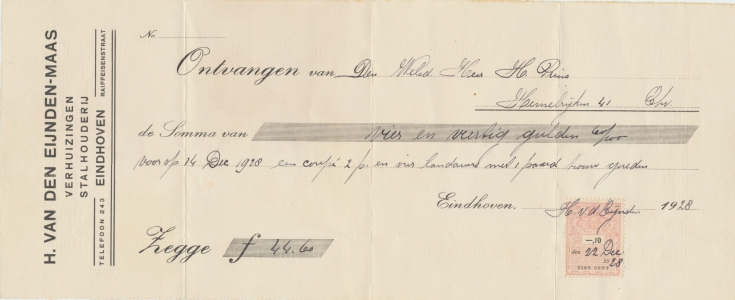 H. VAN DEN EIJNDEN-MAAS
VERHUIZINGEN
STALHOUDERIJ
TELEFOON 243 EINDHOVEN RAIFFEISENSTRAAT
No.
Ontvangen van Den Heer H. Prins
41 Ehv.
de Somma van vier en veertig gulden 60/100
voor op 14 Dec 1928 een coupé 2 p. en vier landauers met 1 paard
Eindhoven, H. v. d. Eijnden 1928
Zegge f 44.60
—,10
den 22 Dec
19 28
TIEN CENT